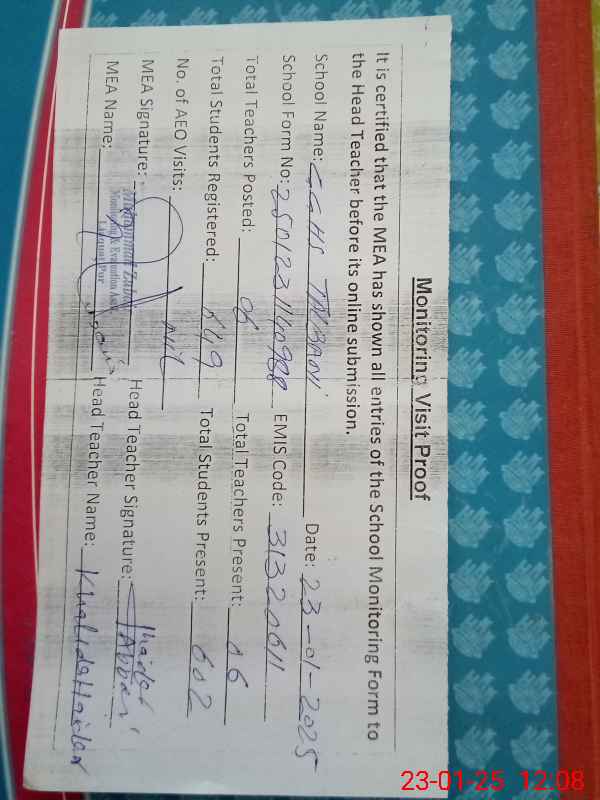 Monitoring Visit Proof
It is certified that the MEA has shown all entries of the School Monitoring Form to
the Head Teacher before its online submission.
School Name: GGHS Date: 23-01-2025
School Form No: EMIS Code: 31320611
Total Teachers Posted: 06 Total Teachers Present: 06
Total Students Registered: 649 Total Students Present: 602
No. of AEO Visits: Nil
MEA Signature: Head Teacher Signature:
Muhammad Zubair
Monitoring & Evaluation Asstt.
Liaquat Pur
MEA Name: Head Teacher Name: Khalida Haider
23-01-25 12:08